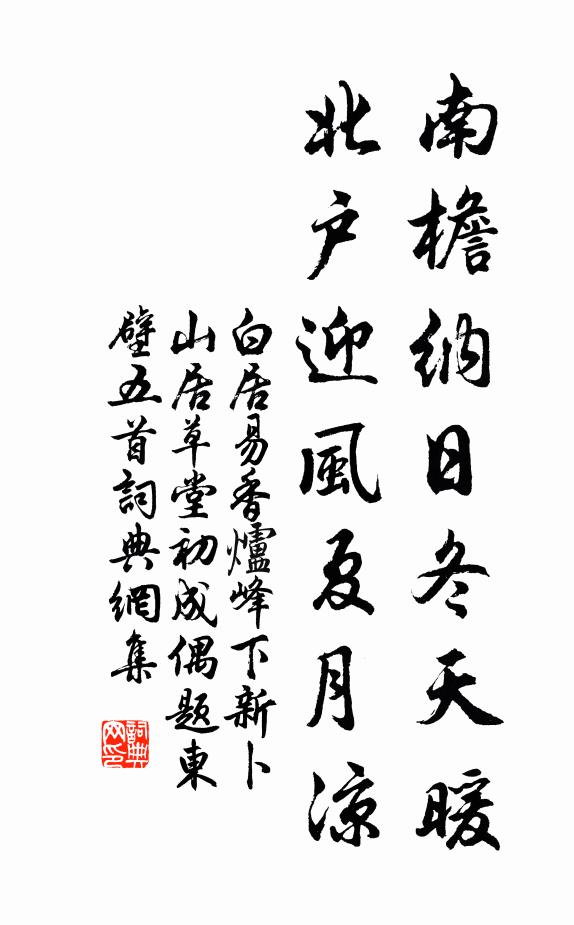 南檐納日冬天暖
北户迎風夏月涼
白居易香爐峰下新卜
山居草堂初成偶題東
壁五首詞典網集
詞典網印